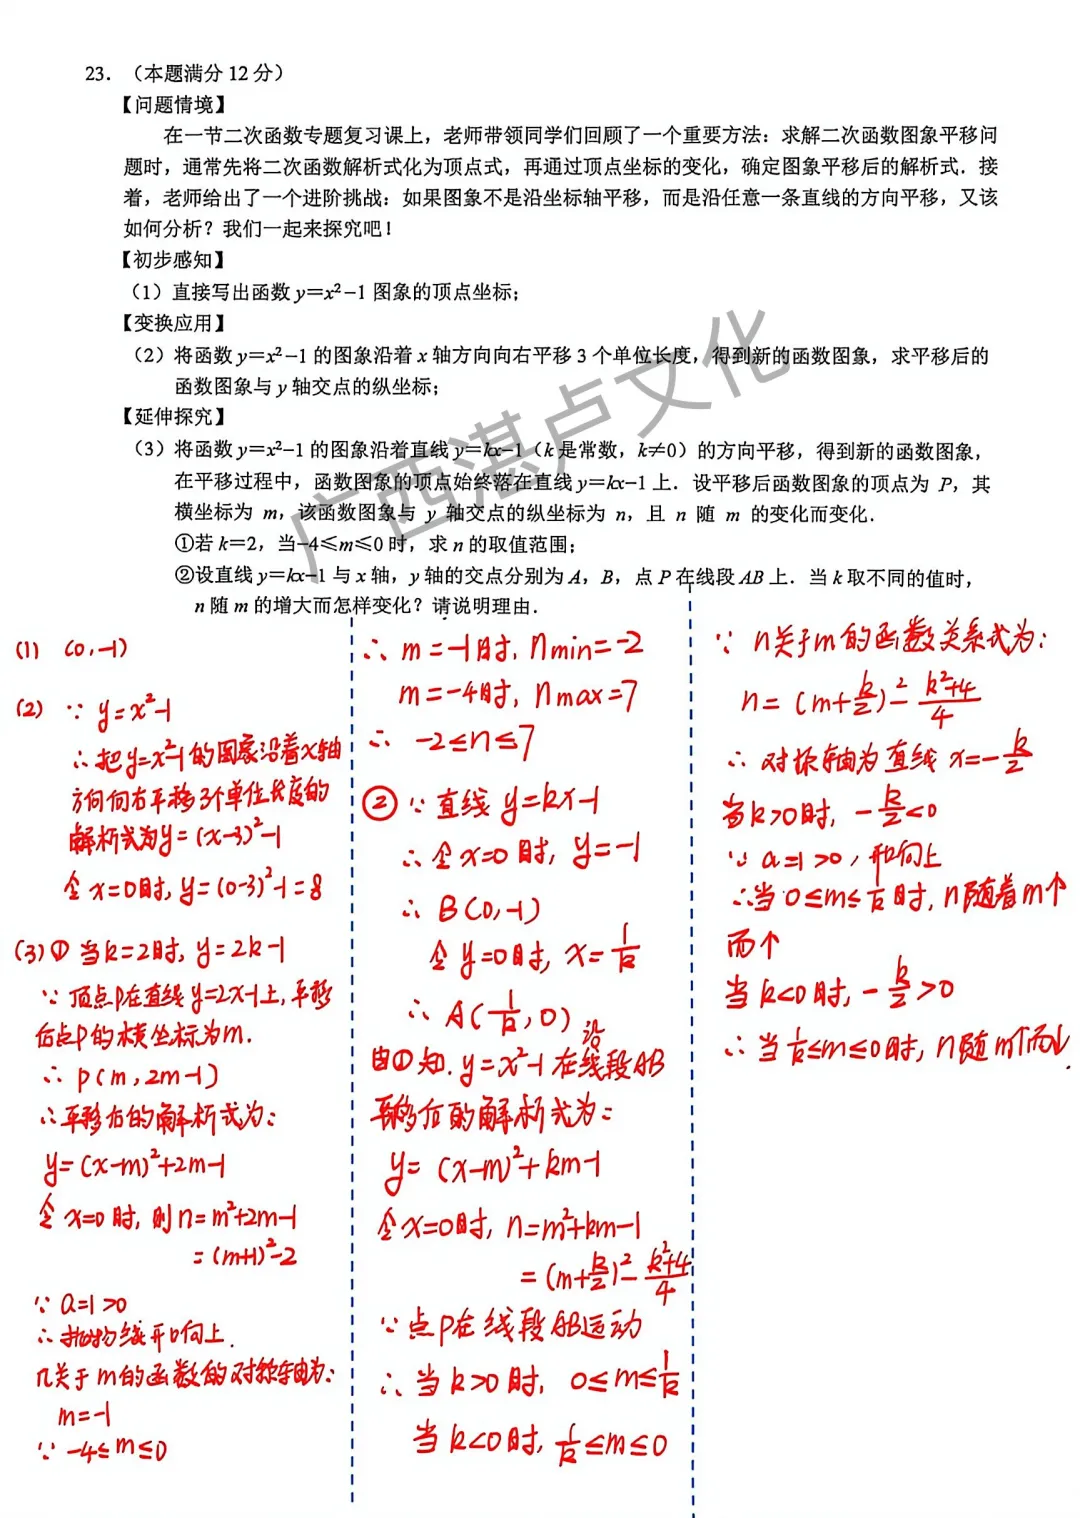 23．（本题满分 12 分）
【问题情境】
在一节二次函数专题复习课上，老师带领同学们回顾了一个重要方法：求解二次函数图象平移问
题时，通常先将二次函数解析式化为顶点式，再通过顶点坐标的变化，确定图象平移后的解析式．接
着，老师给出了一个进阶挑战：如果图象不是沿坐标轴平移，而是沿任意一条直线的方向平移，又该
如何分析？我们一起来探究吧！
【初步感知】
（1）直接写出函数 y＝x²－1 图象的顶点坐标；
【变换应用】
（2）将函数 y＝x²－1 的图象沿着 x 轴方向向右平移 3 个单位长度，得到新的函数图象，求平移后的
函数图象与 y 轴交点的纵坐标；
【延伸探究】
（3）将函数 y＝x²－1 的图象沿着直线 y＝kx－1（k 是常数，k≠0）的方向平移，得到新的函数图象，
在平移过程中，函数图象的顶点始终落在直线 y＝kx－1 上．设平移后函数图象的顶点为 P，其
横坐标为 m，该函数图象与 y 轴交点的纵坐标为 n，且 n 随 m 的变化而变化．
①若 k＝2，当－4≤m≤0 时，求 n 的取值范围；
②设直线 y＝kx－1 与 x 轴，y 轴的交点分别为 A，B，点 P 在线段 AB 上．当 k 取不同的值时，
n 随 m 的增大而怎样变化？请说明理由．
广西湛卢文化
(1) (0,-1)
(2) ∵ y=x²-1
∴把y=x²-1的图象沿着x轴
方向向右平移3个单位长度的
解析式为y=(x-3)²-1
令x=0时,y=(0-3)²-1=8
(3)① 当k=2时, y=2k-1
∵ 顶点P在直线y=2x-1上,平移
后点P的横坐标为m.
∴ P(m,2m-1)
∴平移后的解析式为:
y=(x-m)²+2m-1
令x=0时,则n=m²+2m-1
=(m+1)²-2
∵ a=1>0
∴抛物线开口向上.
n关于m的函数的对称轴为:
m=-1
∵ -4≤m≤0
∴ m=-1时, nmin=-2
m=-4时, nmax=7
∴ -2≤n≤7
② ∵直线 y=kx-1
∴令x=0时, y=-1
∴ B(0,-1)
令y=0时, x=1/k
∴ A(1/k,0)
由①知, y=x²-1沿在线段AB
平移后的解析式为:
y=(x-m)²+km-1
令x=0时, n=m²+km-1
=(m+k/2)²-(k²+4)/4
∵点P在线段AB运动
∴ 当k>0时, 0≤m≤1/k
当k<0时, 1/k≤m≤0
∵ n关于m的函数关系式为:
n=(m+k/2)²-(k²+4)/4
∴ 对称轴为直线x=-k/2
当k>0时, -k/2<0
∵ a=1>0, 开口向上
∴当0≤m≤1/k时, n随着m个
而个
当k<0时, -k/2>0
∴当1/k≤m≤0时, n随m个而↓.